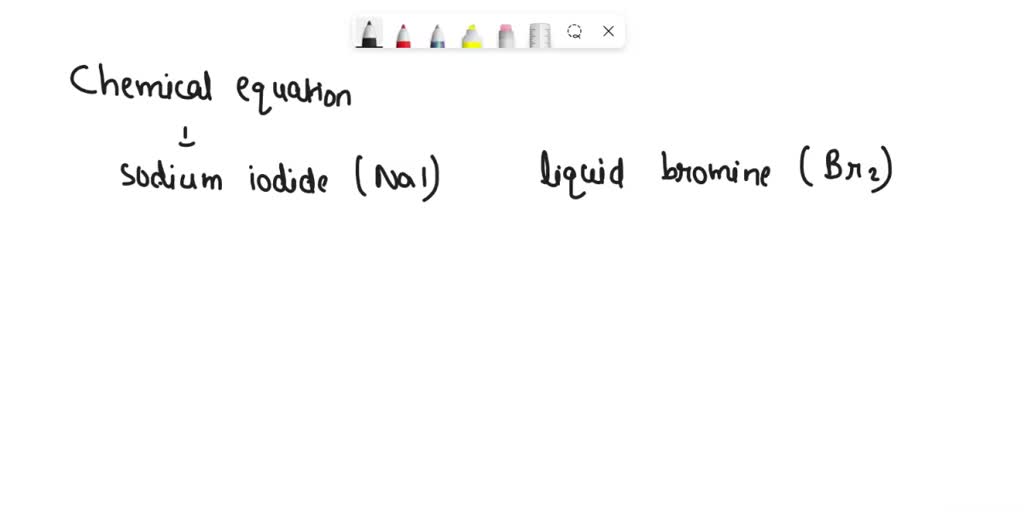 Chemical equation
sodium iodide (NaI) liquid bromine (Br2)